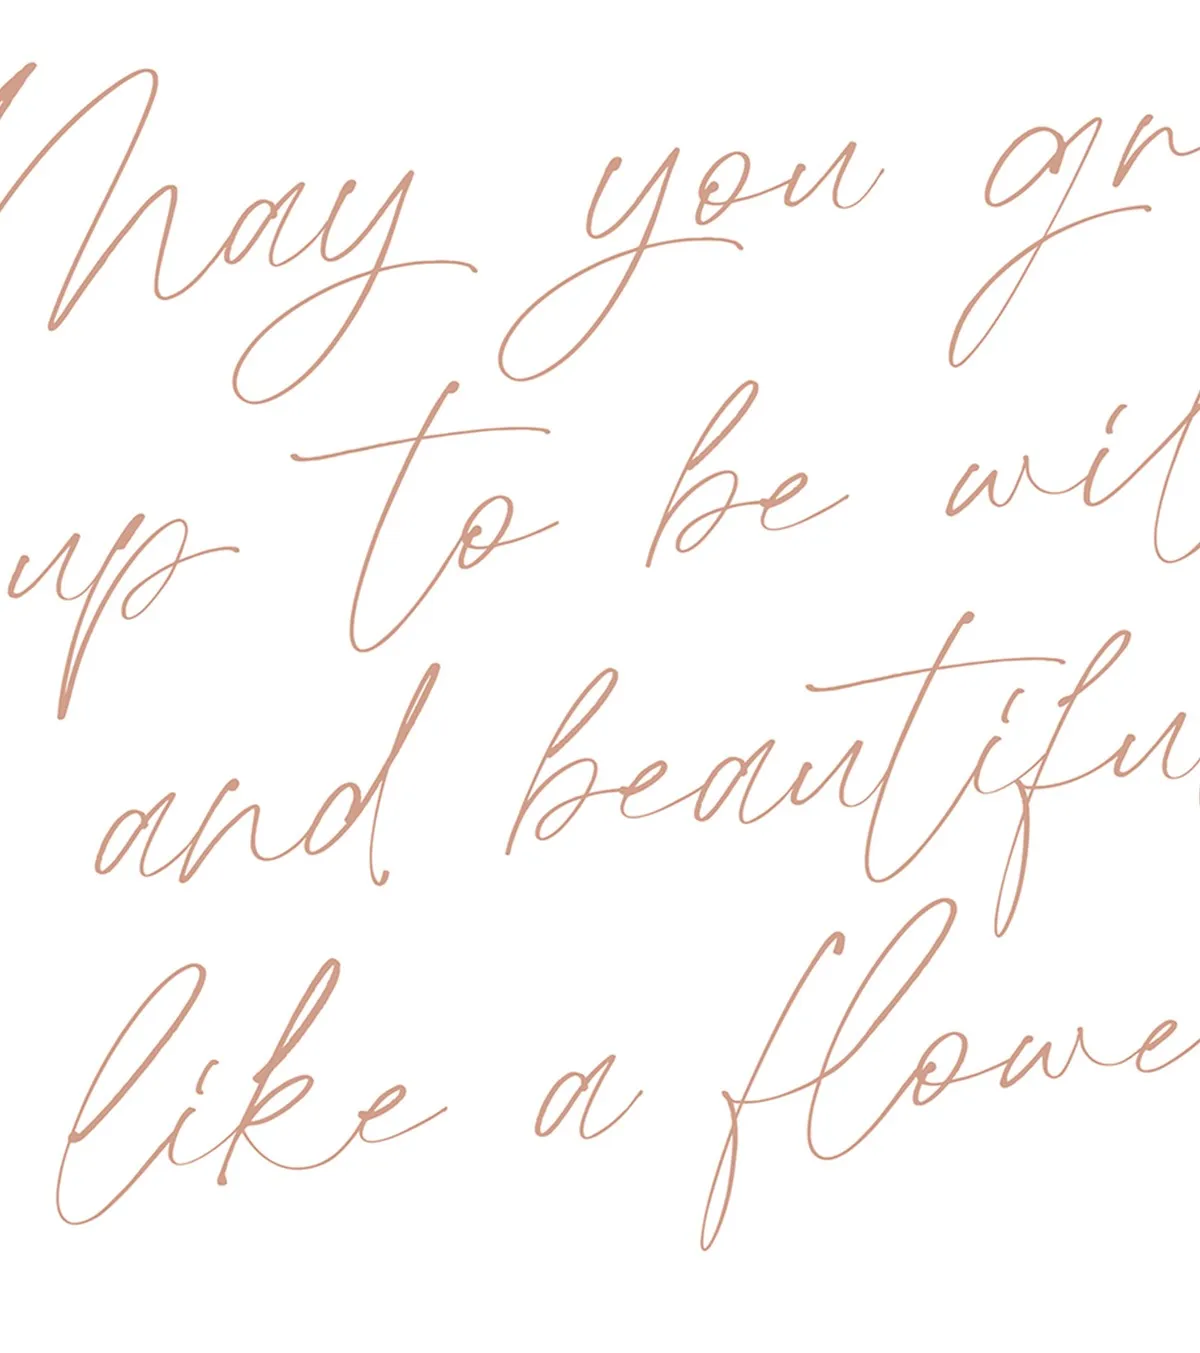 May you gr
up to be wil
and beautifu
like a flowe